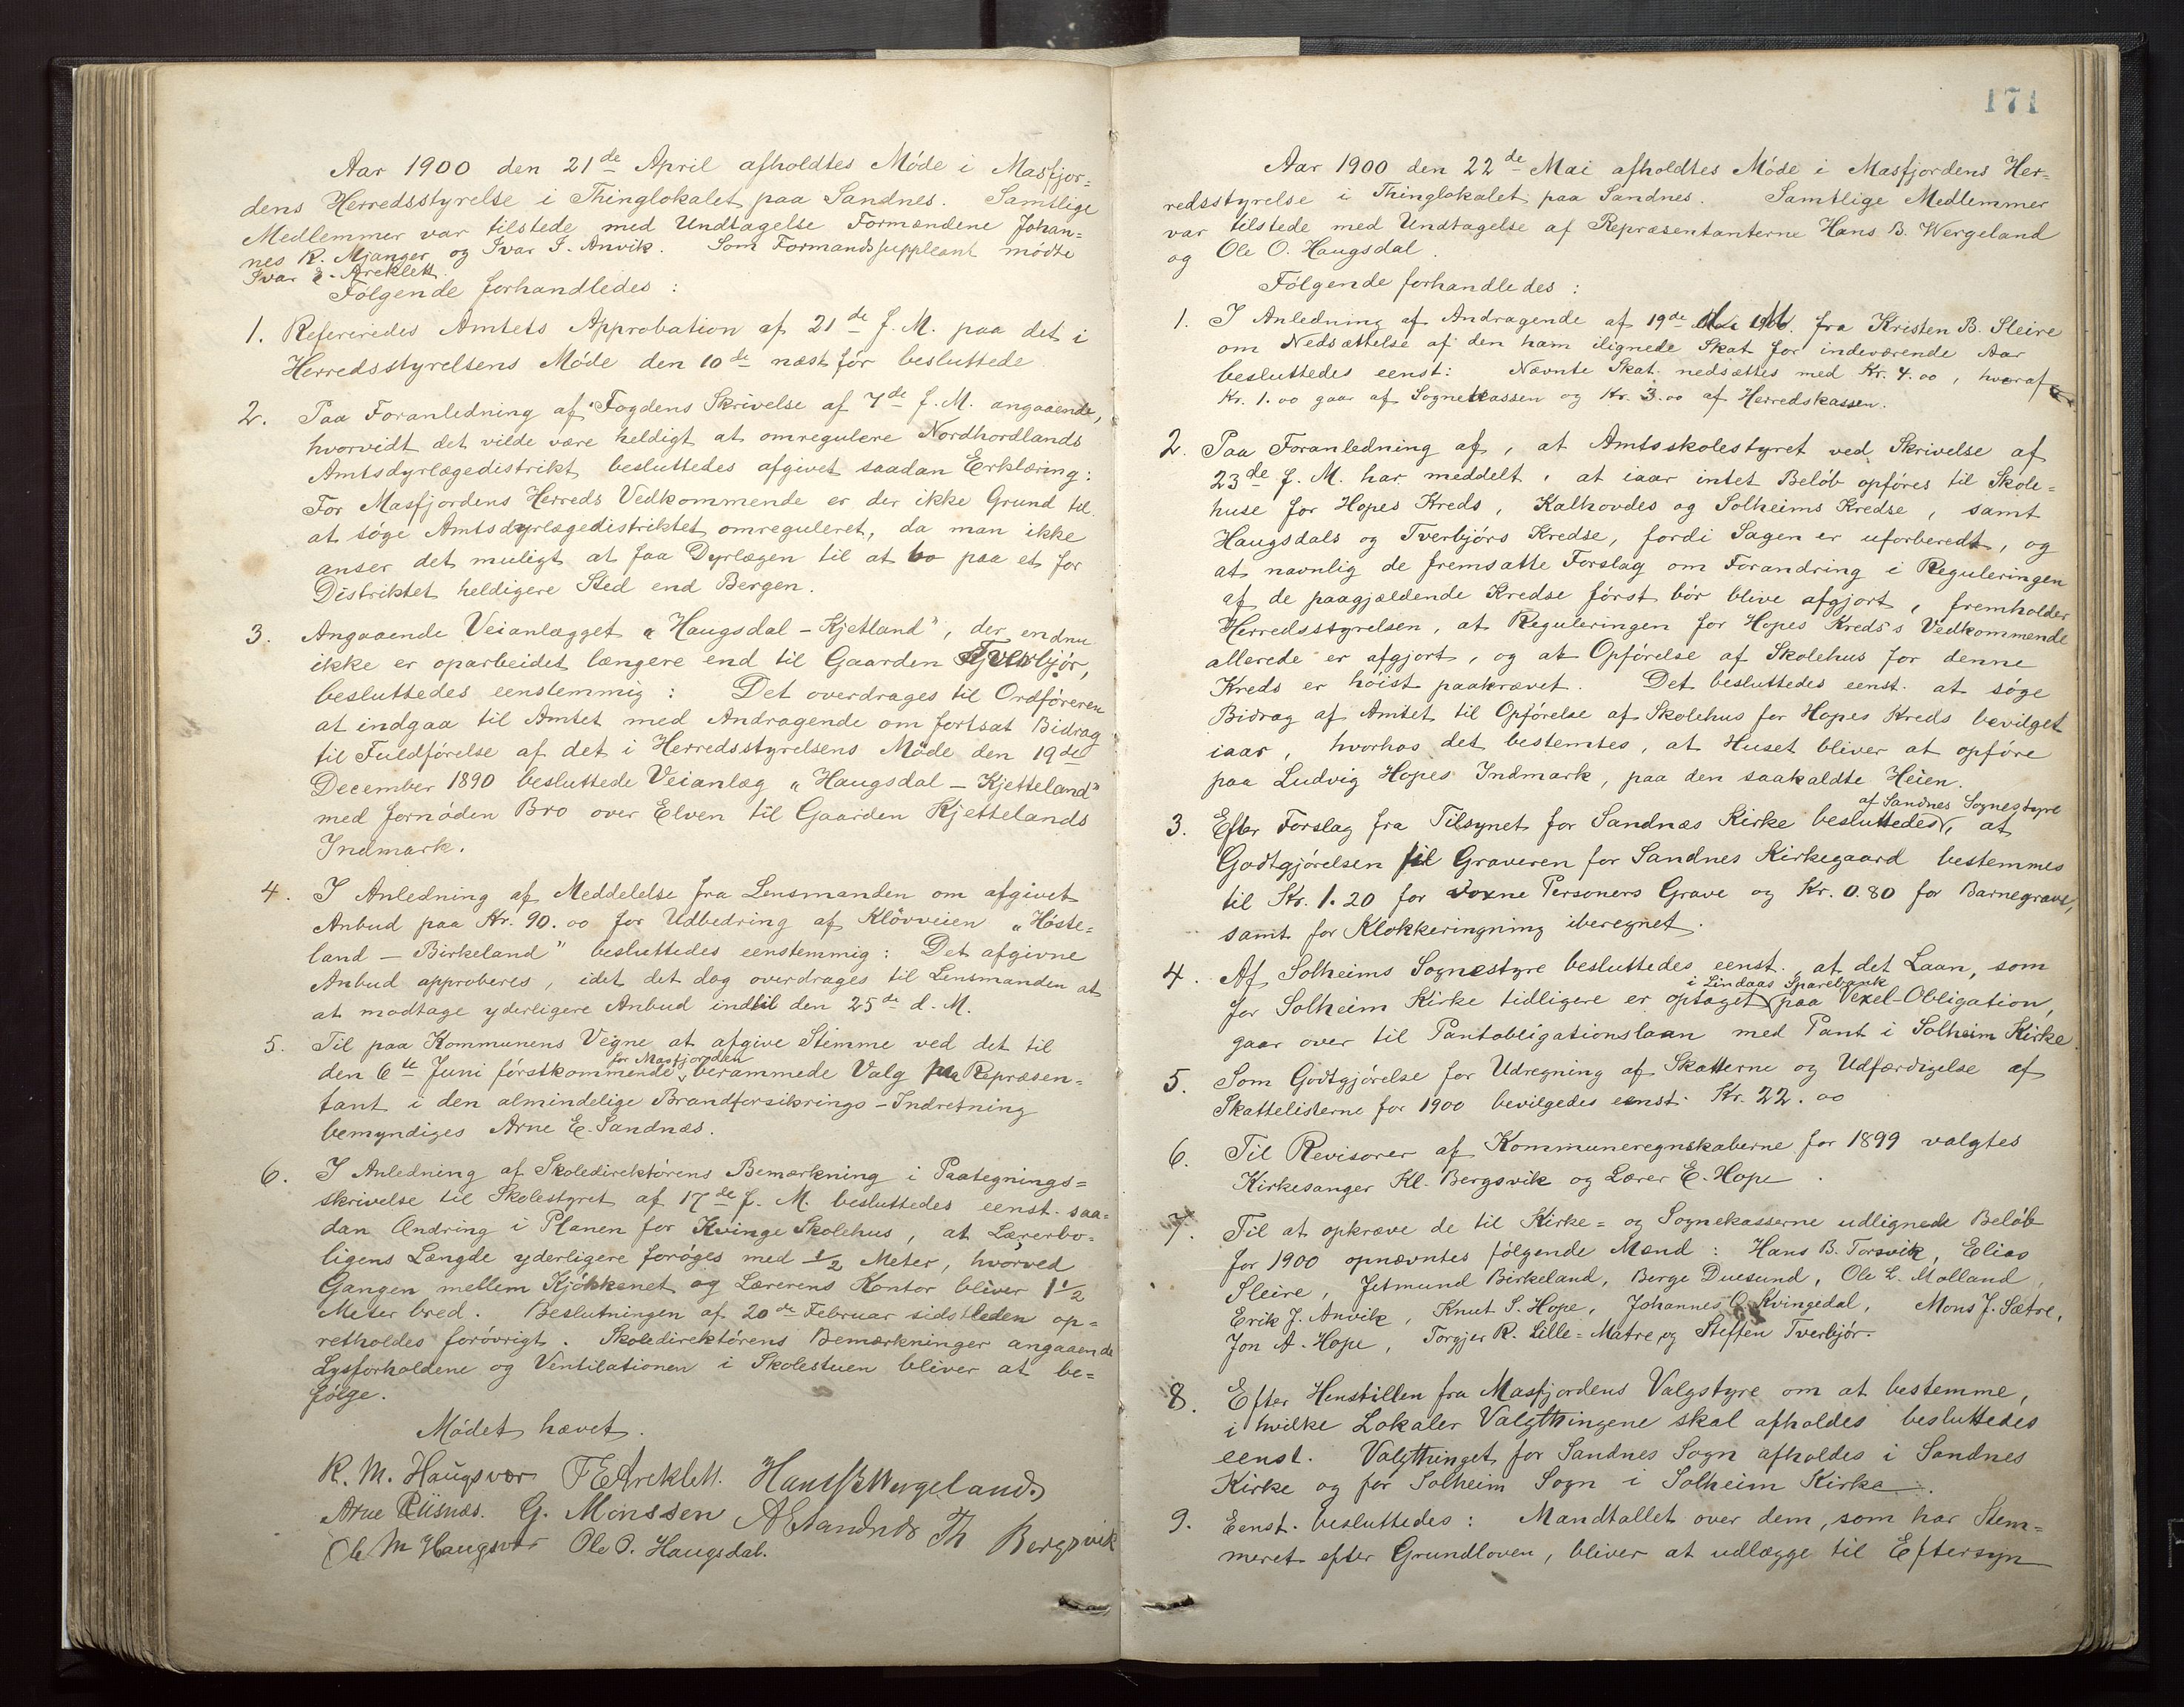 Aar 1900 den 21de April afholdtes Møde i Masfjor=
dens Herredsstyrelse i Thinglokalet paa Sandnes. Samtlige
Medlemmer var tilstede med Undtagelse Formændene Johan=
nes K. Mjanger og Ivar I. Anvik. Som Formandssuppleant mødte
Ivar E. Areklett.
Følgende forhandledes:
1. Refereredes Amtets Approbation af 21de f. M. paa det i
Herredsstyrelsens Møde den 10de næst før besluttede
2. Paa Foranledning af Fogdens Skrivelse af 7de f. M. angaaende,
hvorvidt det vilde være heldigt at omregulere Nordhordlands
Amtsdyrlægedistrikt besluttedes afgivet saadan Erklæring:
For Masfjordens Herreds Vedkommende er der ikke Grund til
at søge Amtsdyrlægedistriktet omreguleret, da man ikke
anser det muligt at faa Dyrlægen til at bo paa et for
Distriktet heldigere Sted end Bergen.
3. Angaaende Veianlægget "Haugsdal – Kjetland", der endnu
ikke er oparbeidet længere end til Gaarden Tverbjør,
besluttedes eenstemmig: Det overdrages til Ordføreren
at indgaa til Amtet med Andragende om fortsat Bidrag
til Fuldførelse af det i Herredsstyrelsens Møde den 19de
December 1890 besluttede Veianlæg "Haugsdal – Kjetteland"
med fornøden Bro over Elven til Gaarden Kjettelands
Indmark.
4. I Anledning af Meddelelse fra Lensmanden om afgivet
Anbud paa Kr. 90.00 for Udbedring af Kløvveien "Høste=
land – Birkeland" besluttedes eenstemmig: Det afgivne
Anbud approberes, idet det dog overdrages til Lensmanden at
at modtage yderligere Anbud indtil den 25de d. M.
5. Til paa Kommunens Vegne at afgive Stemme ved det til
den 6te Juni førstkommende for Masfjorden berammede Valg paa Repræsen=
tant i den almindelige Brandforsikrings-Indretning
bemyndiges Arne E. Sandnæs.
6. I Anledning af Skoledirektørens Bemærkning i Paategnings=
skrivelse til Skolestyret af 17de f. M. besluttedes eenst. saa=
dan Ændring i Planen for Kvinge Skolehus, at Lærerbo=
ligens Længde yderligere forøges med 1/2 Meter, hvorved
Gangen mellem Kjøkkenet og Lærerens Kontor bliver 1 1/2
Meter bred. Beslutningen af 20de Februar sidstleden op=
retholdes forøvrigt. Skoledirektørens Bemærkninger angaaende
Lysforholdene og Ventilationen i Skolestuen bliver at be=
følge.
Mødet hævet.
K. M. Haugsvær I E Areklett. Hans B Wergeland
Arne Riisnæs. G. Monssen A E Sandnæs Th Bergsvik
Ole M Haugsvær Ole O. Haugsdal.
171
Aar 1900 den 22de Mai afholdtes Møde i Masfjordens Her=
redsstyrelse i Thinglokalet paa Sandnes. Samtlige Medlemmer
var tilstede med Undtagelse af Repræsentanterne Hans B. Wergeland
og Ole O. Haugsdal.
Følgende forhandledes:
1. I Anledning af Andragende af 19de fra Kristen B. Sleire
om Nedsættelse af den ham ilignede Skat for indeværende Aar
besluttedes eenst: Nævnte Skat nedsættes med Kr. 4.00, hvoraf
Kr. 1.00 gaar af Sognekassen og Kr. 3.00 af Herredskassen.
2. Paa Foranledning af, at Amtsskolestyret ved Skrivelse af
23de f. M. har meddelt, at iaar intet Beløb opføres til Skole=
huse for Hopes Kreds, Kalhovdes og Solheims Kredse, samt
Haugsdals og Tverbjørs Kredse, fordi Sagen er uforberedt, og
at navnlig de fremsatte Forslag om Forandring i Reguleringen
af de paagjældende Kredse først bør blive afgjort, fremholder
Herredsstyrelsen, at Reguleringen for Hopes Kreds's Vedkommende
allerede er afgjort, og at Opførelse af Skolehus for denne
Kreds er høist paakrævet. Det besluttedes eenst. at søge
Bidrag af Amtet til Opførelse af Skolehus for Hopes Kreds bevilget
iaar, hvorhos det bestemtes, at Huset bliver at opføre
paa Ludvig Hopes Indmark, paa den saakaldte Heien.
3. Efter Forslag fra Tilsynet for Sandnæs Kirke besluttedes af Sandnes Sognestyre, at
Godtgjørelsen til Graveren for Sandnes Kirkegaard bestemmes
til Kr. 1.20 for voxne Personers Grave og Kr. 0.80 for Barnegrave,
samt for Klokkeringning iberegnet.
4. Af Solheims Sognestyre besluttedes eenst., at det Laan, som
for Solheim Kirke tidligere er optaget i Lindaas Sparebank paa Vexel-Obligation,
gaar over til Pantobligationslaan med Pant i Solheim Kirke.
5. Som Godtgjørelse for Udregning af Skatterne og Udfærdigelse af
Skattelisterne for 1900 bevilgedes eenst. Kr. 22.00
6. Til Revisorer af Kommuneregnskaberne for 1899 valgtes
Kirkesanger Kl. Bergsvik og Lærer E. Hope.
7. Til at opkræve de til Kirke= og Sognekasserne udlignede Beløb
for 1900 opnævntes følgende Mænd: Hans B. Torsvik, Elias
Sleire, Jetmund Birkeland, Berge Duesund, Ole L. Molland,
Erik J. Anvik, Knut S. Hope, Johannes O. Kvingedal, Mons J. Sætre,
Jon A. Hope, Torgjer R. Lille=Matre og Steffen Tverbjør.
8. Efter Henstillen fra Masfjordens Valgstyre om at bestemme,
i hvilke Lokaler Valgthingene skal afholdes besluttedes
eenst. Valgthinget for Sandnes Sogn afholdes i Sandnes
Kirke og for Solheim Sogn i Solheim Kirke.
9. Eenst. besluttedes: Mandtallet over dem, som har Stem=
meret efter Grundloven, bliver at udlægge til Eftersyn